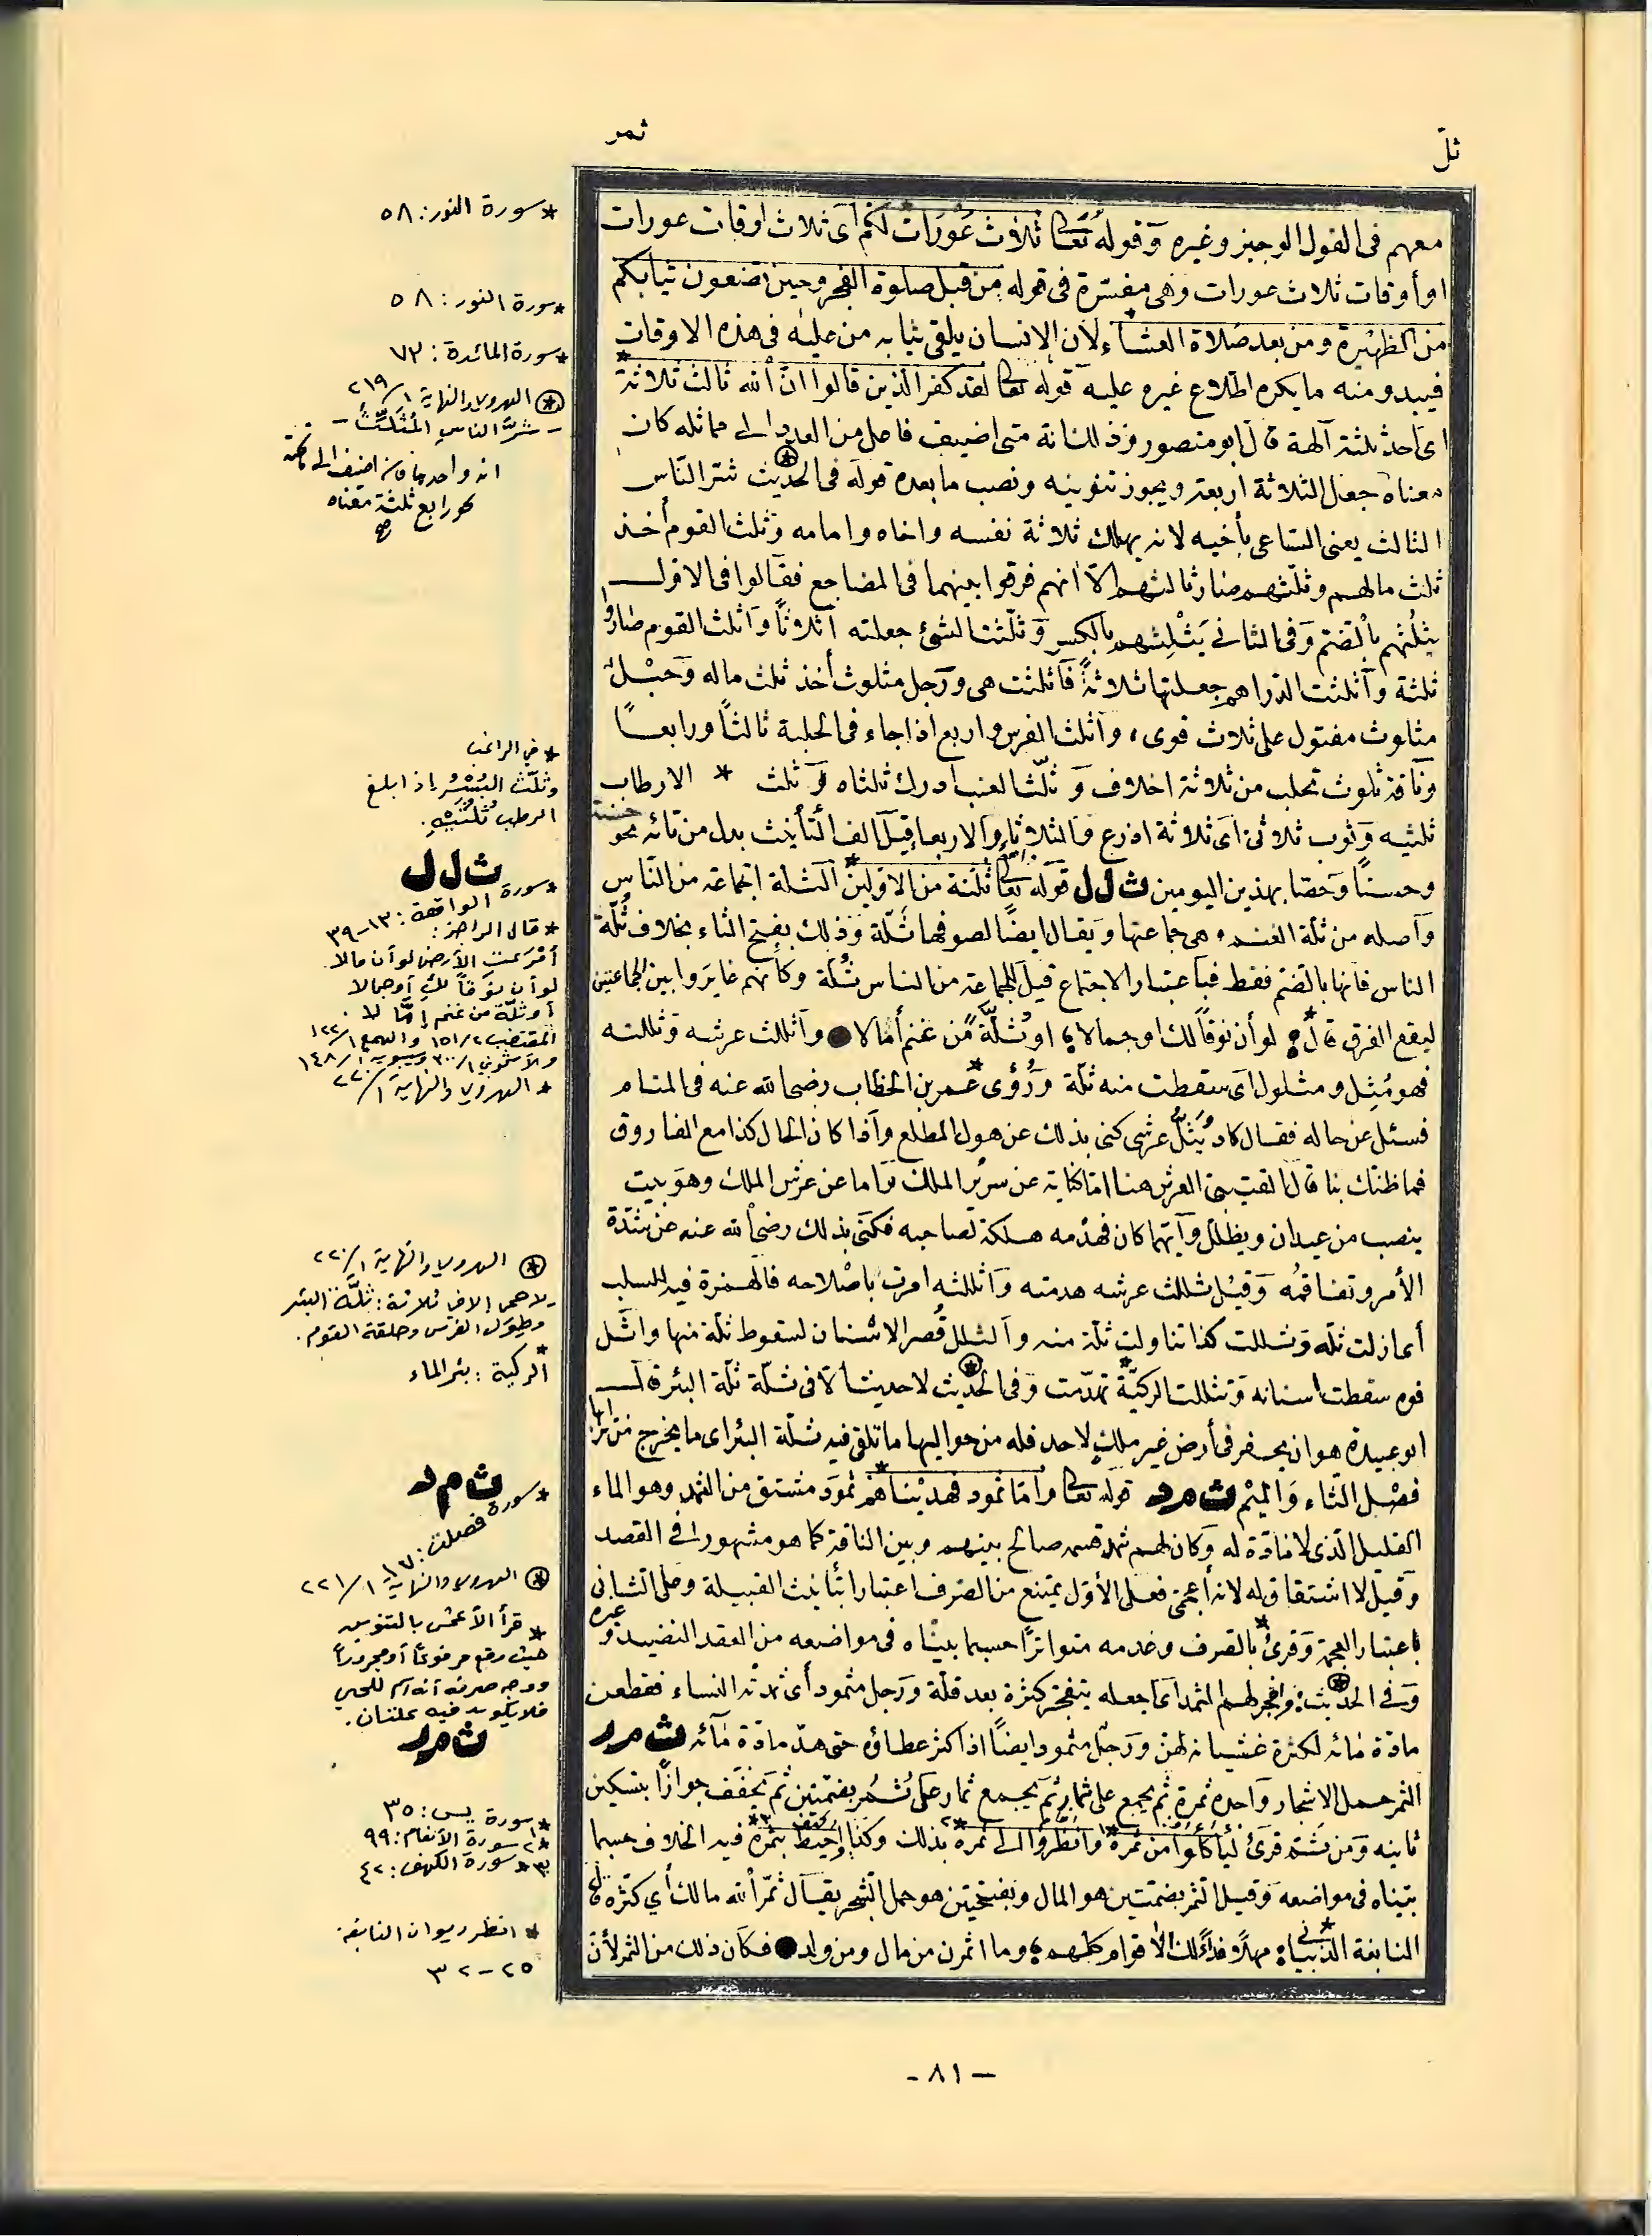 ثلّ
ثمر
معهم فى القول الوجيز وغيره وقوله تعالى ثلاث عورات لكم أى ثلاث اوقات عورات
او أوقات ثلاث عورات وهى مفسّرة فى قوله من قبل صلوة الفجر وحين تضعون ثيابكم
من الظهيرة ومن بعد صلاة العشاء لان الانسان يلقى ثيابه من عليه فى هذه الاوقات
فيبدو منه ما يكره اطلاع غيره عليه قوله تعالى لقد كفر الذين قالوا انّ الله ثالث ثلاثة
اى احد ثلثة آلهة قال ابو منصور وذلك انة متى اضيف فاعل من العدد الى مماثله كان
معناه جعل الثلاثة اربعة ويجوز تنوينه ونصب ما بعده قوله فى الحديث شر النّاس
الثالث يعنى الساعى بأخيه لانه يهلك ثلاثة نفسه واخاه وامامه وثلث القوم أخذ
ثلث مالهم وثلثهم صار ثالثهم الا انهم فرقوا بينهما فى المضارع فقالوا فى الاول
يثلُثهم بالضم وفى الثانى يَثْلِثهم بالكسر وثلّثت الشئ جعلته اثلاثًا وأثلث القوم صاروا
ثلثة وأثلثت الدراهم جعلتها ثلاثةً فأثلثت هى ورجل مثلوث أخذ ثلث ماله وحَبْل
مثلوث مفتول على ثلاث قوى، وأثلث الفرس واربع اذا جاء فى الحلبة ثالثًا ورابعًا
وناقة ثلوث تحلب من ثلاثة اخلاف وثلّث العنب ادرك ثلثاه وثلث * الارطاب
ثلثيه وثوب ثلاثى اى ثلاثة اذرع والثلاثاء والاربعاء قيل الف التأنيث بدل من تائه نحو حسنة
وحسناء وخصا بهذين اليومين ث ل ل قوله تعالى ثلّة من الاولين الثلة الجماعة من النّاس
وأصله من ثلة الغنم، هى جماعتها ويقال ايضًا لصوفها ثَلّة وذلك بفتح الثاء بخلاف ثُلّة
الناس فانها بالضم فقط فباعتبار الاجتماع قيل للجماعة من الناس ثُلة وكأنهم غايروا بين الجماعتين
ليقع الفرق قال لو أن نوقًا لك او جمالا او ثُلّةً من غنم أمّا لا وأثللت عرشه وثللته
فهو مُثِل ومثلول اى سقطت منه ثلّة ورُؤى عمر بن الخطاب رضى الله عنه فى المنام
فسئل عن حاله فقال كاد يُثلّ عرشى كنى بذلك عن هول المطلع واذا كان الحال كذا مع الفاروق
فما ظنك بنا قال القتيبى العرش هنا اما كناية عن سرير الملك واما عن عرش الملك وهو بيت
ينصب من عيدان ويظلل وأيّهما كان فهدمه هلكة لصاحبه فكنى بذلك رضى الله عنه عن شدّة
الأمر وتفاقمه وقيل ثللت عرشه هدمته وأثللته امرت باصلاحه فالهمزة فيه للسلب
أى ازلت ثلّه وثللت كذا تناولت ثلّة منه والثلل قصر الاسنان لسقوط ثلّة منها واثّل
فوه سقطت اسنانه وتثللت الركيّة تهدّمت وفى الحديث لا حمى الا فى ثلاثة ثلّة البئر قال
ابو عبيدة هو ان يحفر فى أرض غير ملك لاحد فله من حواليها ما تلقى فيه ثلّة البئر اى ما يخرج من ترابها
فصْل الثاء والميْم ث م د قوله تعالى وأمّا ثمود فهديْناهم ثمود مشتق من الثمد وهو الماء
القليل الذى لا مادّة له وكان لهم ثمد قسمه صالح بينهم وبين الناقة كما هو مشهور فى القصد
وقيل لا اشتقاق له لانه أعجمى فعلى الأول يمتنع من الصرف اعتبارا بتأنيث القبيلة وعلى الثانى
باعتبار العجمة وقرئ بالصرف وعدمه متواترًا حسبما بينّاه فى مواضعه من العقد النضيد وغيره
وفى الحديث: وافجر لهم الثمد اى اجعله يتفجر كثرة بعد قلّة ورجل مثمود أى ثمدته النساء فقطعن
مادة مائه لكثرة غشيانه لهنّ ورجل مثمود ايضًا اذا كثر عطاؤه حتى هدّ مادة مائه ث م ر
الثمر حمل الاشجار واحده ثمرة ثم يجمع على ثمار ثم يجمع ثمار على ثُمُر بضمتين ثم يخفف جوازًا بتسكين
ثانيه ومن ثمّ قرئ ليأكلوا من ثمره وانظروا الى ثمره بذلك وكذا واحيط بثمره فيه الخلاف حسبما
بيّناه فى مواضعه وقيل الثمر بضمتين هو المال وبفتحتين هو حمل الشجر يقال ثمّر الله مالك أي كثّره قال
النابغة الذبيانى مهلًا فداءً لك الأقوام كلهم وما اثمرن من مال ومن ولد فكان ذلك من الثمر لأن
* سورة النور: ٥٨
* سورة النور: ٥٨
* سورة المائدة: ٧٣
الهروى والنهاية ١/٢١٩
- شرّ الناس المُثَلِّثُ -
* في الراغب
وثلّث البُسْرُ إذا بلغ
الرطب ثُلُثَيْهِ.
ث ل ل
* سورة الواقعة: ١٣-٣٩
* قال الراجز:
لو أن نوقًا لك أو جمالا
أو ثلّة من غنم إمّا لا.
المقتضب ٢/١٥١ والهمع ١/١٢٢
والأشموني ١/٣٠٠ وسيبويه ١/١٤٨
* الهروى والنهاية ١/٢٢٠
الهروى والنهاية ١/٢٢٠
لا حمى إلا في ثلاثة: ثلّة البئر
وطِوَل الفرس وحلقة القوم.
* الركية: بئر الماء
ث م د
* سورة فصلت: ١٧
الهروى والنهاية ١/٢٢١
* قرأ الأعمش بالتنوين
حيث وقع مرفوعًا أو مجرورًا
ووجه صرفه أنه اسم للحي
فلا يكون فيه علتان.
ث م ر
*١ سورة يس: ٣٥
*٢ سورة الأنعام: ٩٩
*٣ سورة الكهف: ٤٢
* انظر ديوان النابغة
٢٥-٣٢
- ٨١ -